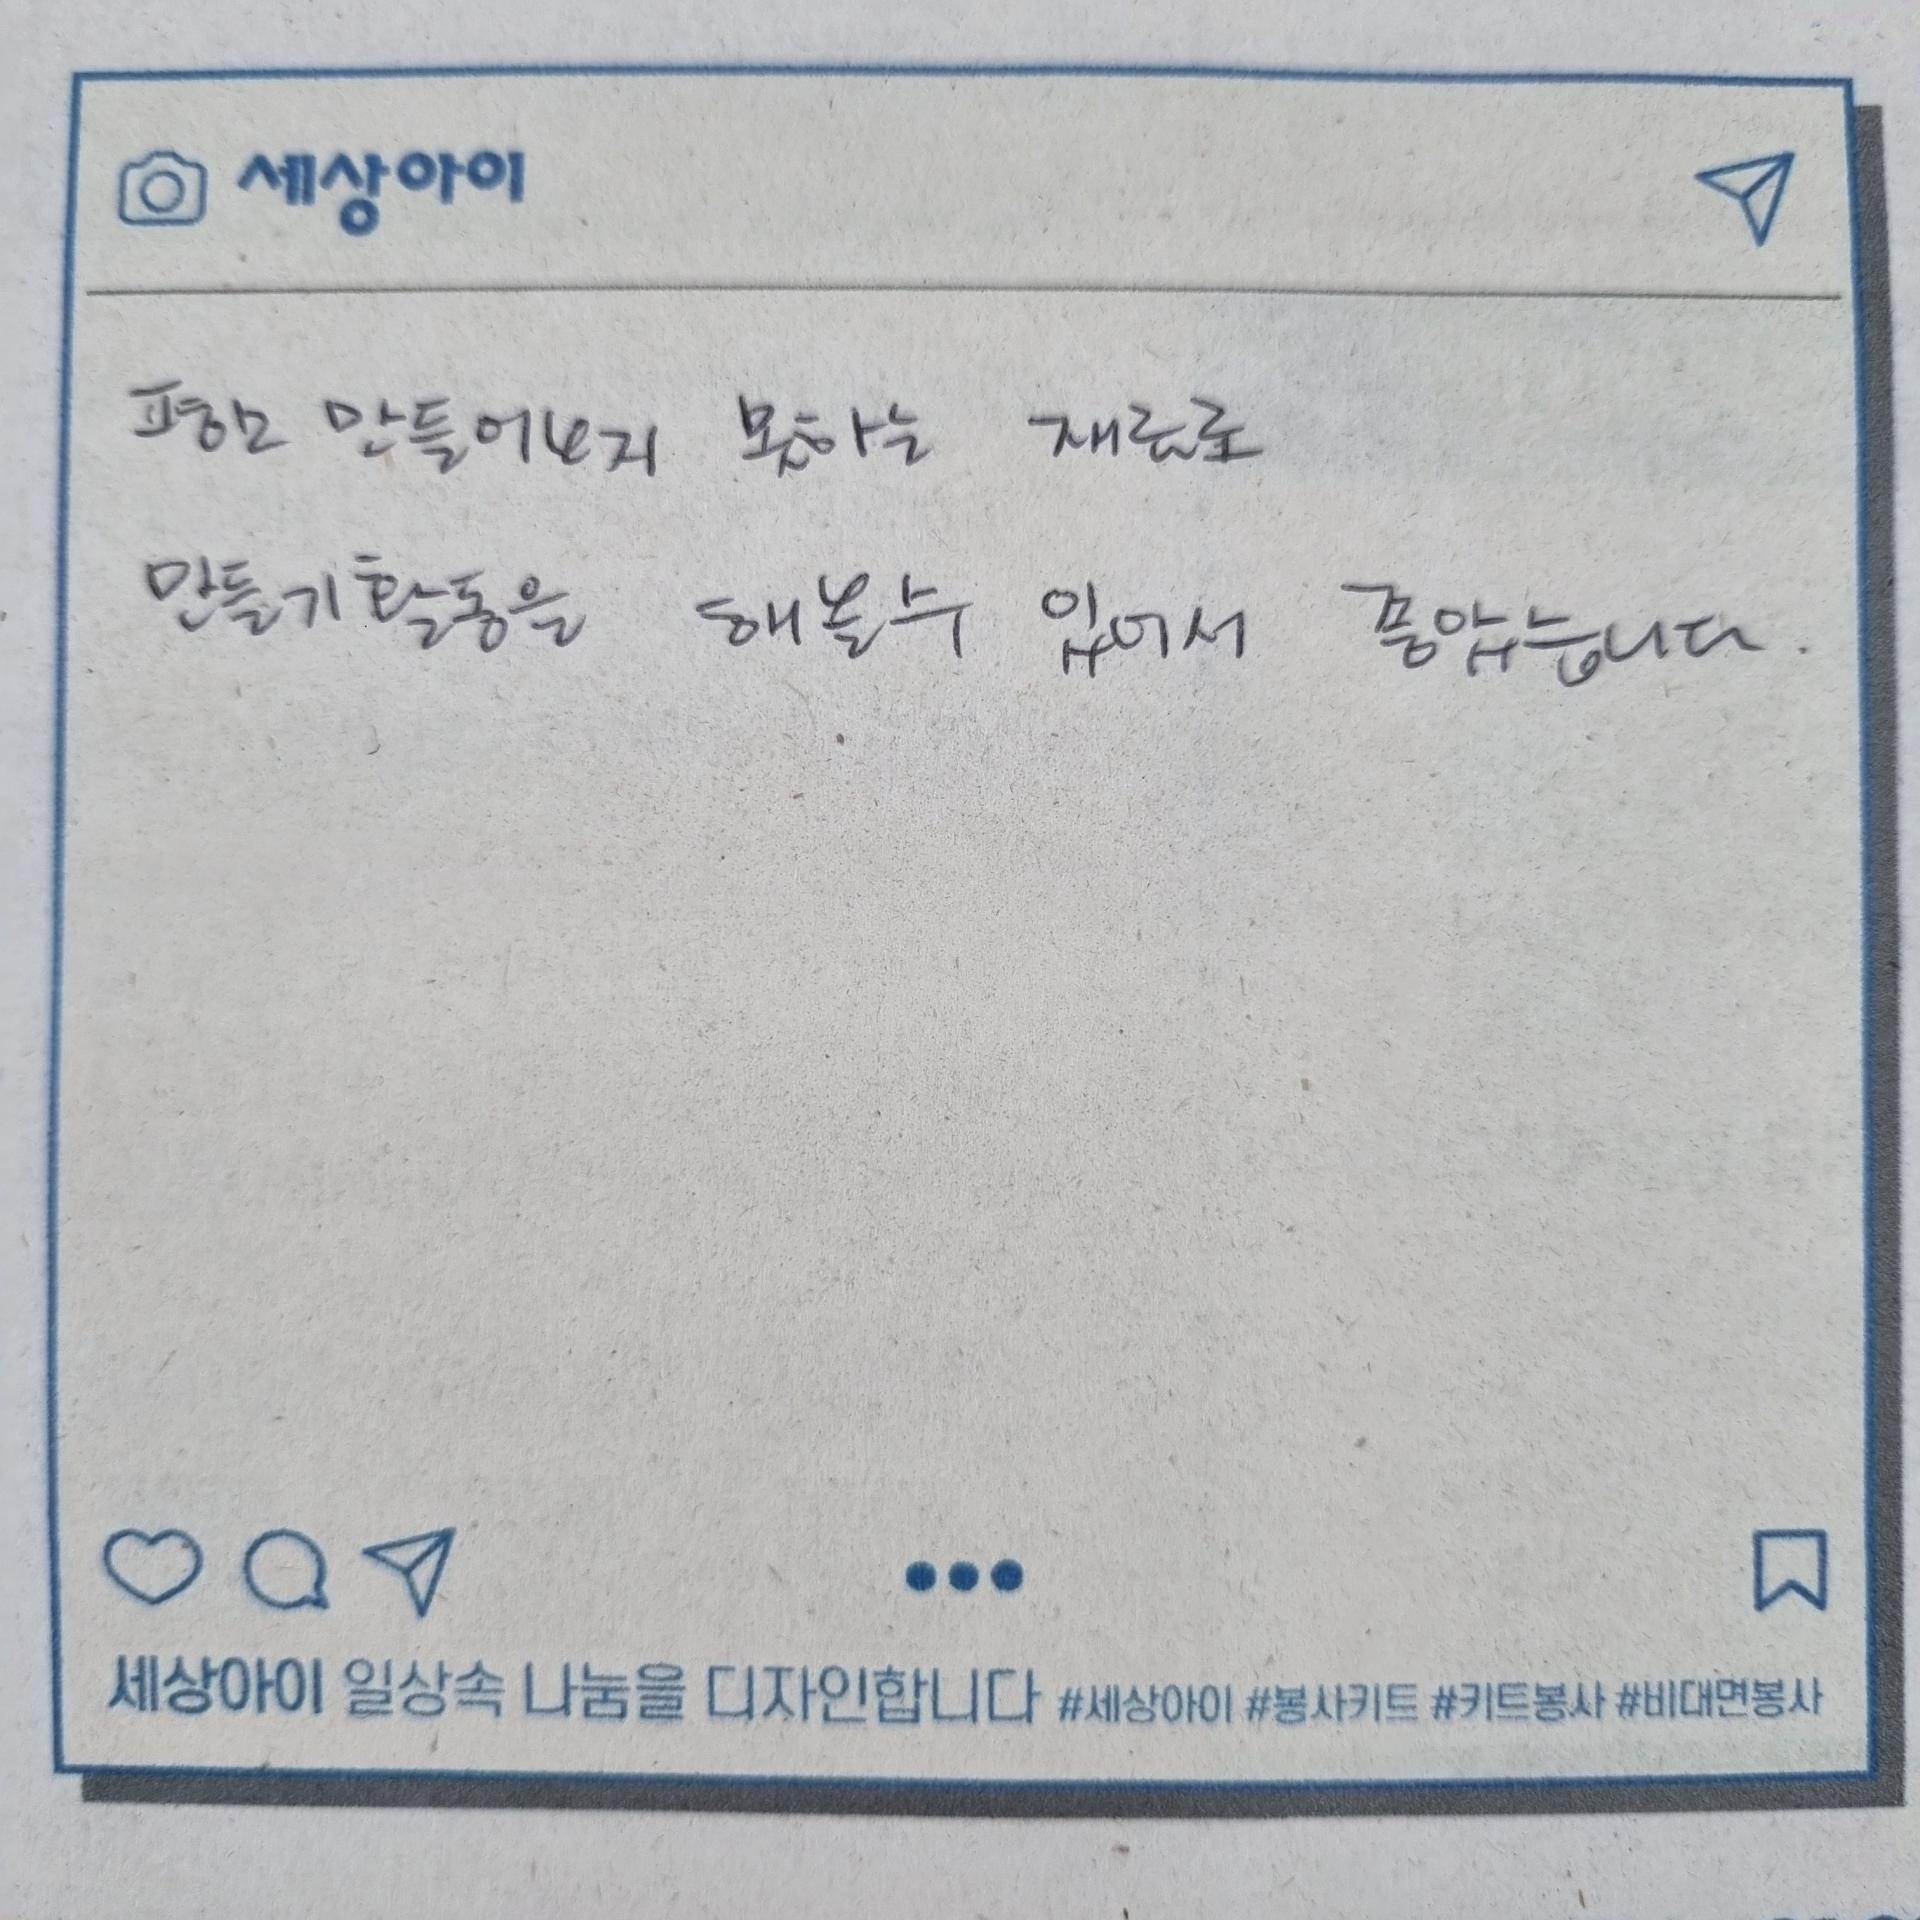 세상아이
평소 만들어보지 못하는 재료로
만들기활동을 해볼수 있어서 좋았습니다.
세상아이 일상속 나눔을 디자인합니다 #세상아이 #봉사키트 #키트봉사 #비대면봉사